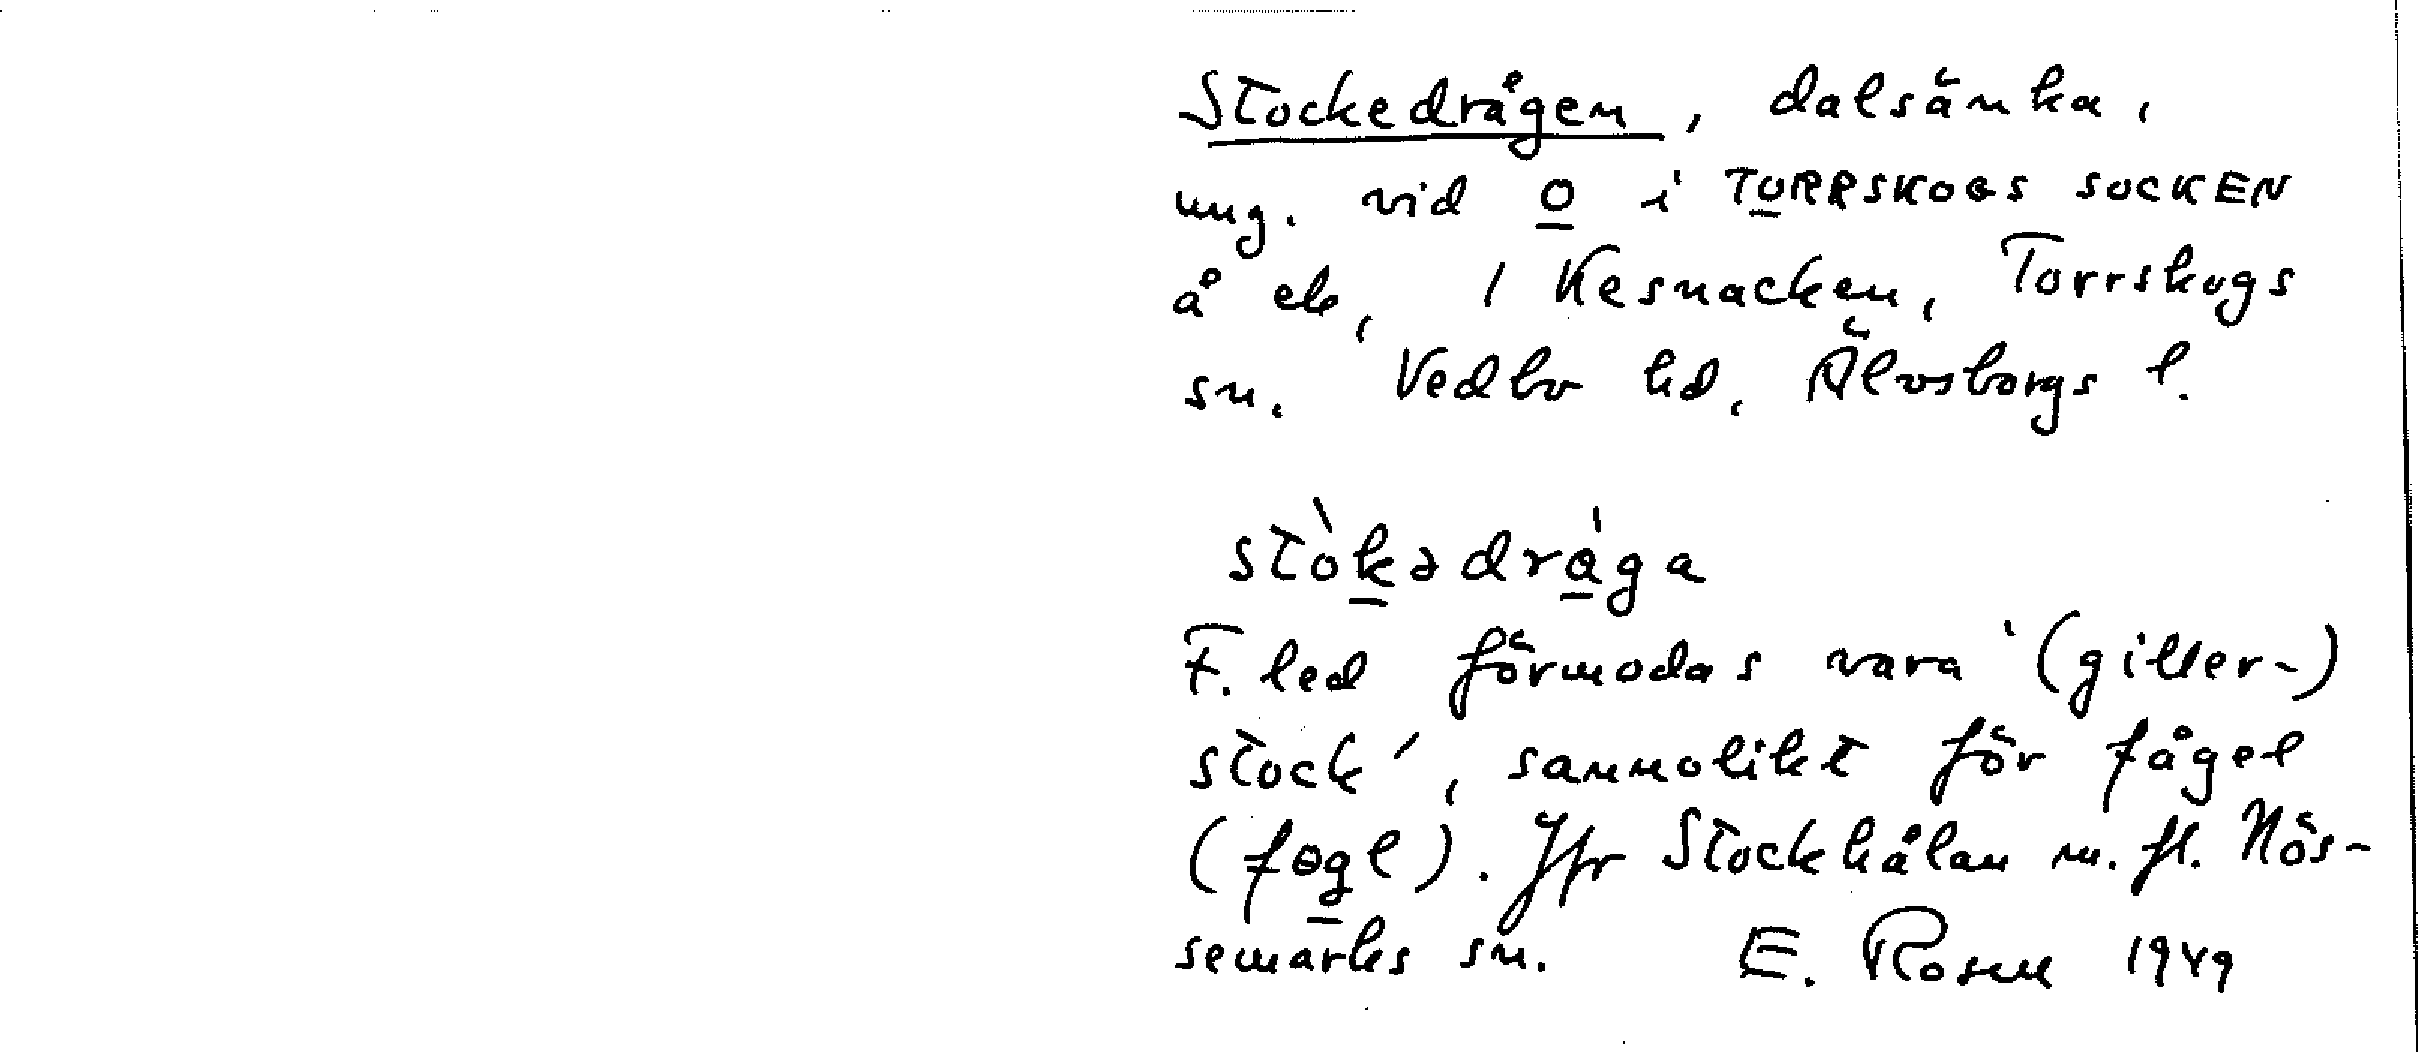 Stockedrågen, dalsänka,
ung. vid O i TORRSKOGS SOCKEN
å ek, 1 Kesnacken, Torrskogs
sn. Vedbo hd, Älvsborgs l.
stòkədrága
F. led förmodas vara '(giller-)
stock', sannolikt för fågel
(fogl). Jfr Stockhålan m. fl. Nös-
semarks sn. E. Rosen 1949